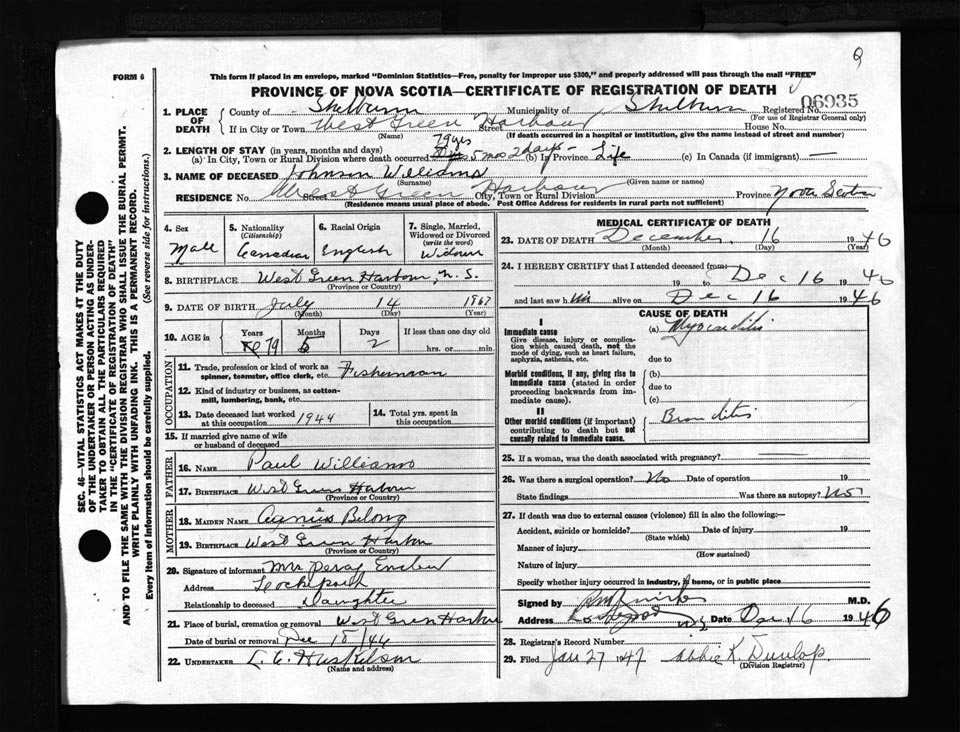 FORM 6
This form if placed in an envelope, marked "Dominion Statistics—Free, penalty for improper use $300," and properly addressed will pass through the mail "FREE"
PROVINCE OF NOVA SCOTIA—CERTIFICATE OF REGISTRATION OF DEATH
06935
1. PLACE OF DEATH County of Shelburn Municipality of Shelburn Registered No.
(For use of Registrar General only)
If in City or Town West Green Harbour Street House No.
(Name) (If death occurred in a hospital or institution, give the name instead of street and number)
2. LENGTH OF STAY (in years, months and days)
(a) In City, Town or Rural Division where death occurred 79 yrs 5 mos 2 days (b) In Province Life (c) In Canada (if immigrant) —
3. NAME OF DECEASED Johnson Williams
(Surname) (Given name or names)
RESIDENCE No. Street West Green Harbour City, Town or Rural Division Province Nova Scotia
(Residence means usual place of abode. Post Office Address for residents in rural parts not sufficient)
4. Sex Male
5. Nationality (Citizenship) Canadian
6. Racial Origin English
7. Single, Married, Widowed or Divorced (write the word) Widower
8. BIRTHPLACE West Green Harbour, N. S.
(Province or Country)
9. DATE OF BIRTH July 14 1867
(Month) (Day) (Year)
10. AGE in Years 79 Months 5 Days 2 If less than one day old hrs. or min.
OCCUPATION
11. Trade, profession or kind of work as spinner, teamster, office clerk, etc. Fisherman
12. Kind of industry or business, as cotton-mill, lumbering, bank, etc.
13. Date deceased last worked at this occupation 1944
14. Total yrs. spent in this occupation
15. If married give name of wife or husband of deceased
FATHER
16. NAME Paul Williams
17. BIRTHPLACE West Green Harbour
(Province or Country)
MOTHER
18. MAIDEN NAME Belong
19. BIRTHPLACE West Green Harbor
(Province or Country)
20. Signature of informant Mrs Percy
Address
Relationship to deceased Daughter
21. Place of burial, cremation or removal West Green Harbor
Date of burial or removal Dec 18/46
22. UNDERTAKER L. C. Huskilson
(Name and address)
MEDICAL CERTIFICATE OF DEATH
23. DATE OF DEATH December 16 1946
(Month) (Day) (Year)
24. I HEREBY CERTIFY that I attended deceased from: Dec 16
19 to 1946
and last saw him alive on Dec 16 1946
CAUSE OF DEATH
I
Immediate cause
Give disease, injury or complication which caused death, not the mode of dying, such as heart failure, asphyxia, asthenia, etc.
(a) Myocarditis
due to
Morbid conditions, if any, giving rise to immediate cause (stated in order proceeding backwards from immediate cause).
(b)
due to
(c)
II
Other morbid conditions (if important) contributing to death but not causally related to immediate cause.
Bronchitis
25. If a woman, was the death associated with pregnancy? —
26. Was there a surgical operation? No Date of operation 19
State findings Was there autopsy? No
27. If death was due to external causes (violence) fill in also the following:—
Accident, suicide or homicide? Date of injury 19
(State which)
Manner of injury
(How sustained)
Nature of injury
Specify whether injury occurred in industry, in home, or in public place
Signed by M.D.
Address Date Dec 16 1946
28. Registrar's Record Number
29. Filed Jan 27 1947 Abbie K. Dunlop
(Division Registrar)
SEC. 46—VITAL STATISTICS ACT MAKES IT THE DUTY
OF THE UNDERTAKER OR PERSON ACTING AS UNDER-
TAKER TO OBTAIN ALL THE PARTICULARS REQUIRED
IN THE "CERTIFICATE OF REGISTRATION OF DEATH"
AND TO FILE THE SAME WITH THE DIVISION REGISTRAR WHO SHALL ISSUE THE BURIAL PERMIT.
WRITE PLAINLY WITH UNFADING INK. THIS IS A PERMANENT RECORD.
Every item of information should be carefully supplied. (See reverse side for instructions.)